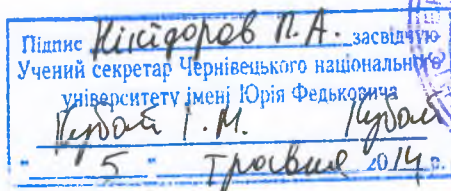 Підпис Нікіфоров П. А. засвідчую
Учений секретар Чернівецького національного
університету імені Юрія Федьковича
І. М.
" 5 " травня 2014 р.